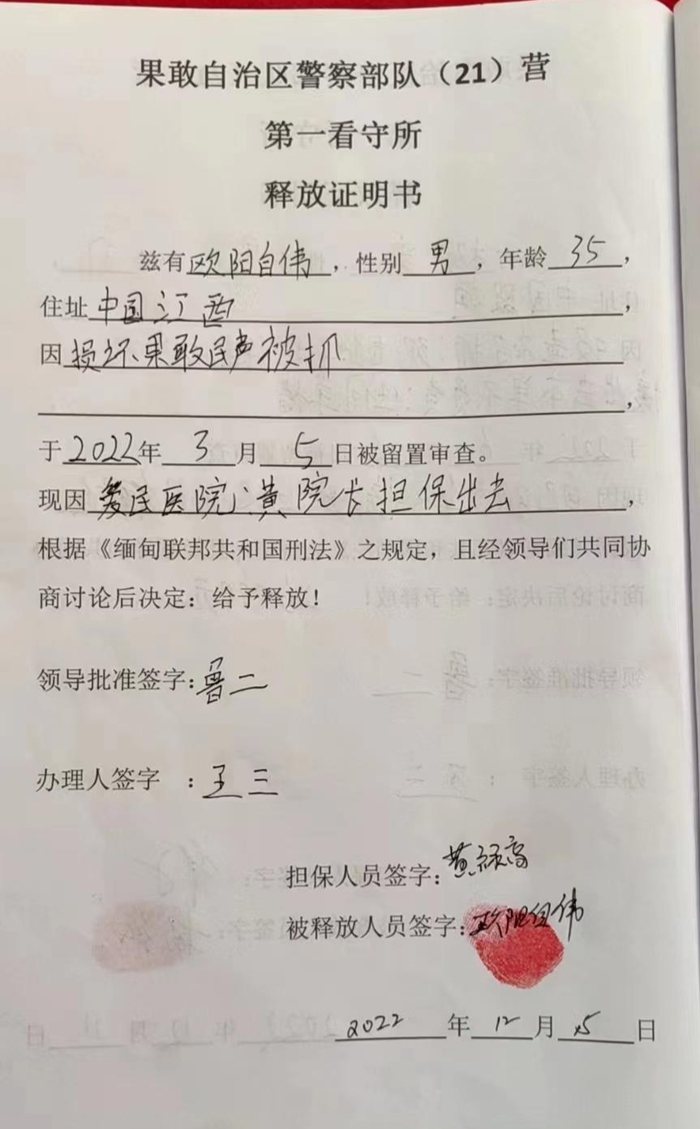 果敢自治区警察部队（21）营
第一看守所
释放证明书
兹有欧阳自伟，性别 男，年龄 35，
住址中国江西，
因损坏果敢民声被抓
，
于2022年 3 月 5 日被留置审查。
现因爱民医院黄院长担保出去，
根据《缅甸联邦共和国刑法》之规定，且经领导们共同协
商讨论后决定：给予释放！
领导批准签字:鲁二
办理人签字 :王三
担保人员签字:黄
被释放人员签字:欧阳自伟
2022 年 12 月 5 日